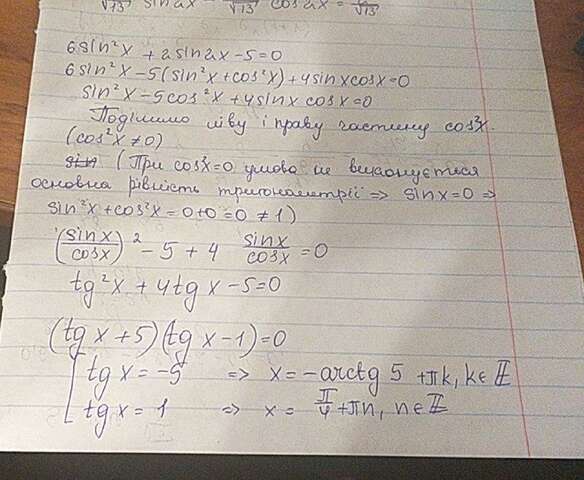 √13 sin2x - √13 cos2x = √13
6sin²x + 2sin2x - 5 = 0
6sin²x - 5(sin²x + cos²x) + 4sinxcosx = 0
sin²x - 5cos²x + 4sinx cosx = 0
Поділимо ліву і праву частину cos²x.
(cos²x ≠ 0)
sin (При cos²x = 0 умова не виконується
основна рівність тригонометрії => sinx = 0 =>
sin²x + cos²x = 0 + 0 = 0 ≠ 1)
(sinx/cosx)² - 5 + 4 sinx/cosx = 0
tg²x + 4tgx - 5 = 0
(tgx + 5)(tgx - 1) = 0
[ tgx = -5 => x = -arctg 5 + πk, k ∈ Z
tgx = 1 => x = π/4 + πn, n ∈ Z